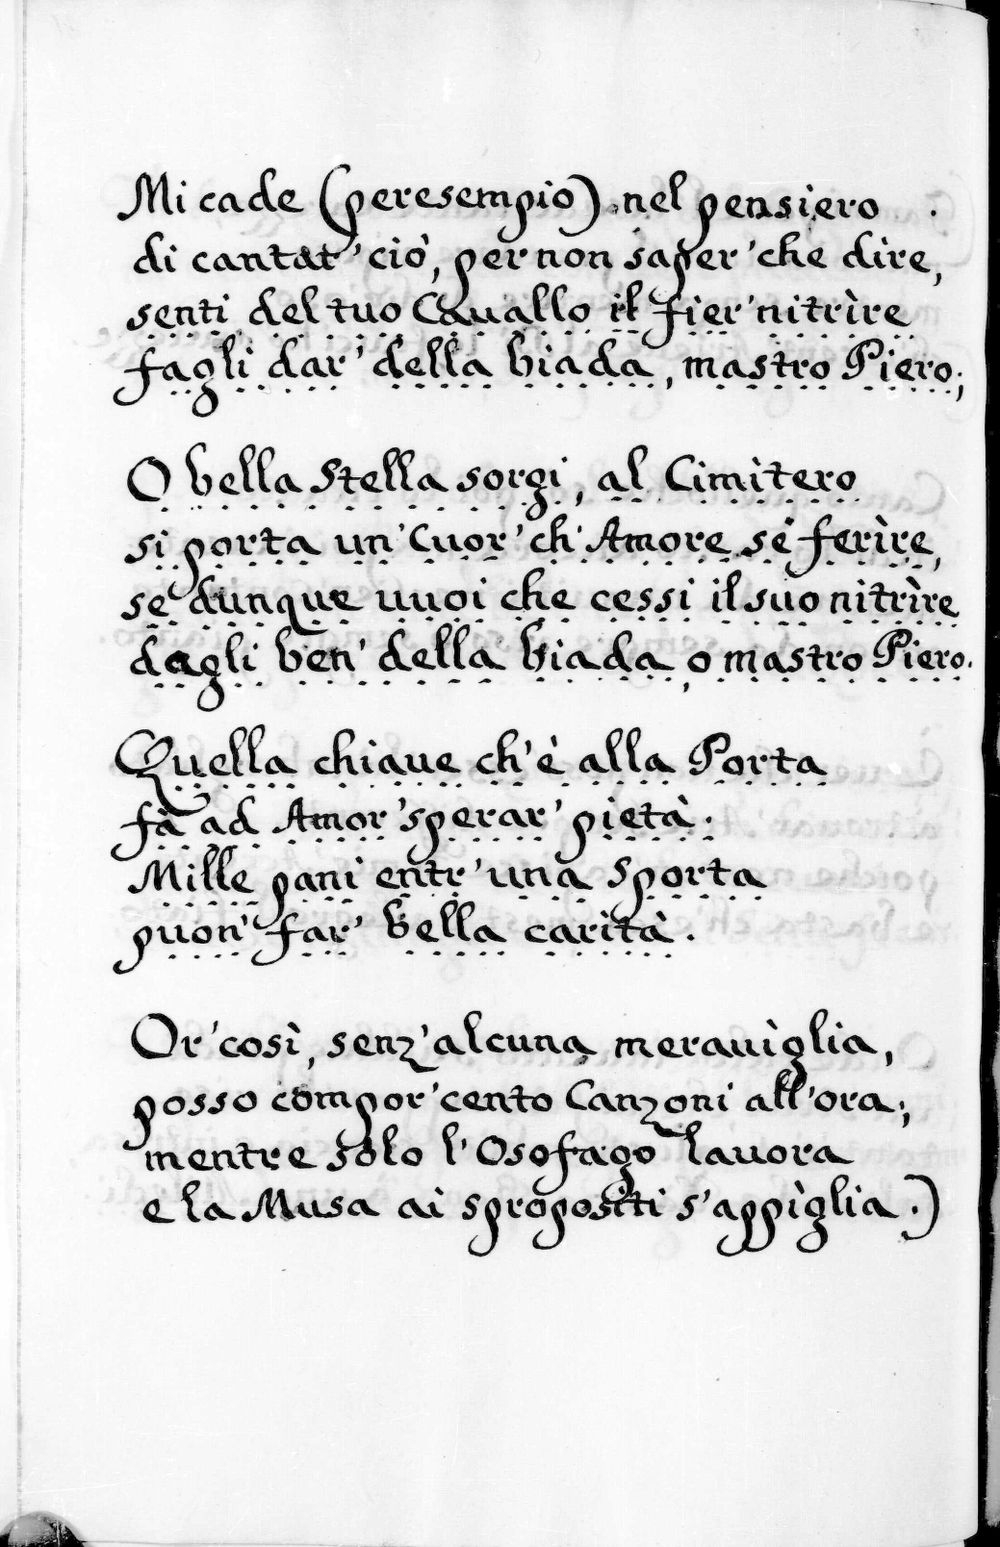 Mi cade (peresempio) nel pensiero
di cantar' ciò, per non saper' che dire,
senti del tuo Cauallo il fier' nitrìre
fagli dar' della biada, mastro Piero;
O bella Stella sorgi, al Cimìtero
si porta un' Cuor' ch' Amore sé ferìre,
sé dunque uuoi che cessi il suo nitrìre
dagli ben' della biada, o mastro Piero.
Quella chiaue ch' è alla Porta
fà ad Amor' sperar' pietà.
Mille pani entr' una Sporta
puon' far' bella carità.
Or' così, senz' alcuna merauìglia,
posso compor' cento Canzoni all' ora;
mentre solo l' Osofago lauora
e la Musa ai spropositi s' appìglia.)